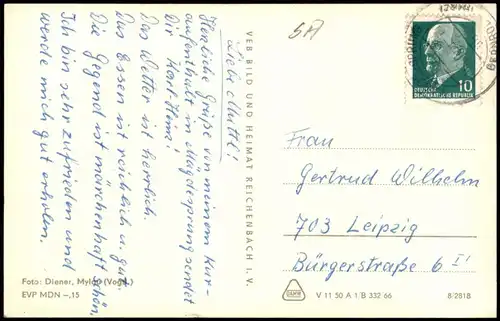 Liebe Mutti!
Herzliche Grüße von meinem Kur-
aufenthalt in Mägdesprung sendet
Dir Horst-Heinz!
Das Wetter ist herrlich.
Das Essen ist reichlich u. gut.
Die Gegend ist märchenhaft schön,
Ich bin sehr zufrieden und
werde mich gut erholen.
Foto: Diener, Mylau (Vogtl.)
EVP MDN –,15
VEB BILD UND HEIMAT REICHENBACH I. V.
10
DEUTSCHE
DEMOKRATISCHE REPUBLIK
Frau
Gertrud Wilhelm
703 Leipzig
Bürgerstraße 6 II
V 11 50 A 1/B 332 66
8/2818